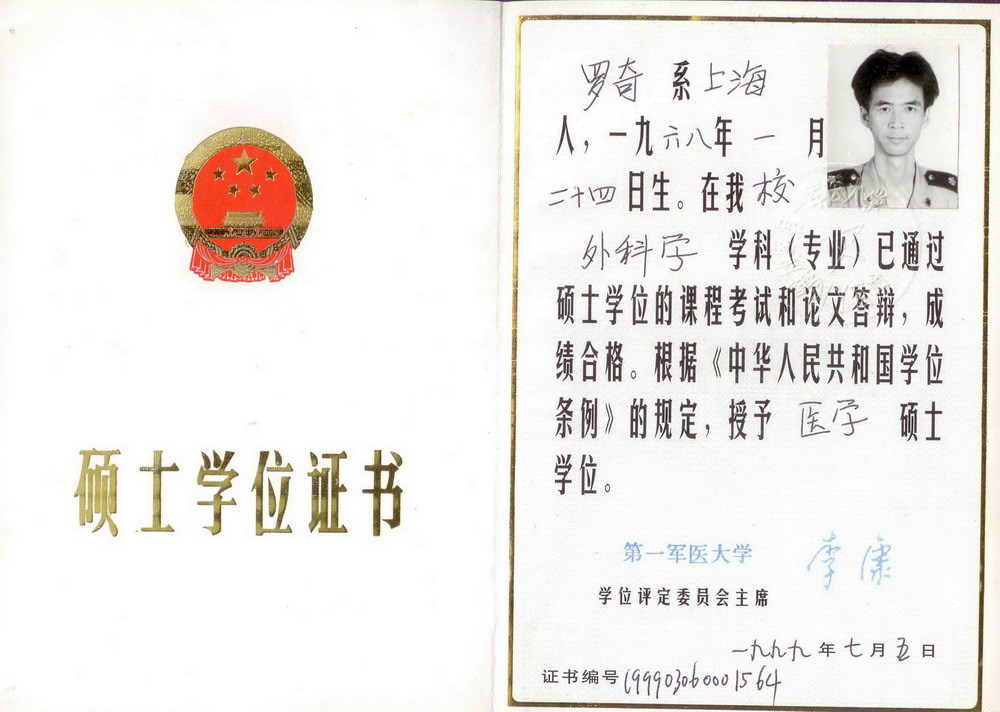 硕士学位证书
罗奇 系 上海
人，一九六八年 一 月
二十四日生。在我校
外科学 学科（专业）已通过
硕士学位的课程考试和论文答辩，成
绩合格。根据《中华人民共和国学位
条例》的规定，授予 医学 硕士
学位。
第一军医大学 李康
学位评定委员会主席
一九九九年七月五日
证书编号 199903060001564